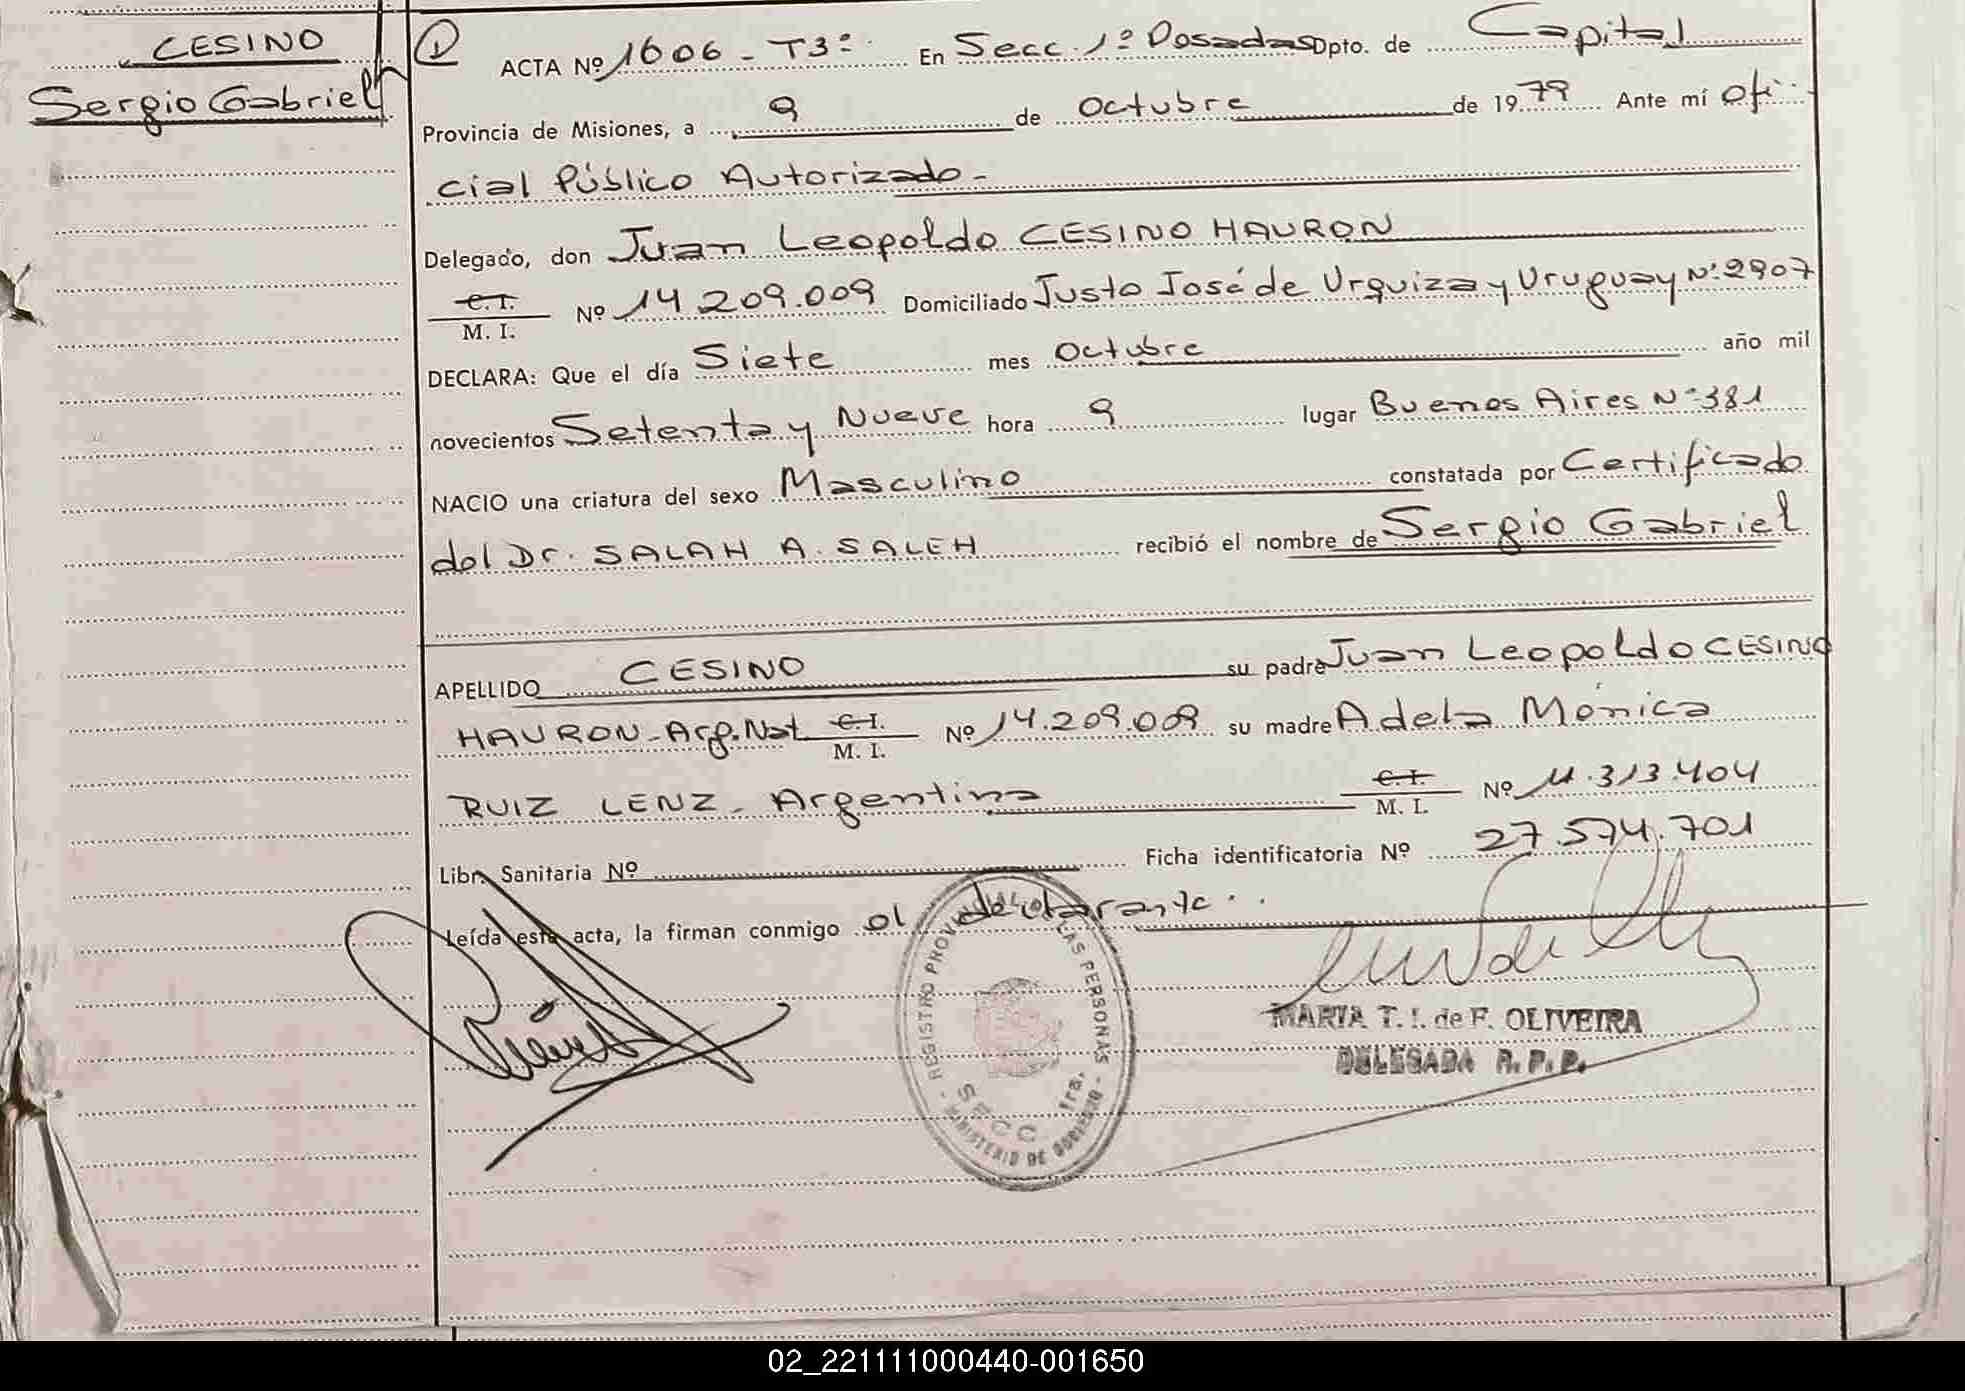 CESINO
Sergio Gabriel
1 ACTA Nº 1606 - T3º. En Secc. 1º Posadas Dpto. de Capital
Provincia de Misiones, a 9 de Octubre de 1979 Ante mí Ofi
cial Público Autorizado.-
Delegado, don Juan Leopoldo CESINO HAURON
C.I. / M. I. Nº 14.209.009 Domiciliado Justo José de Urquiza y Uruguay Nº 2907
DECLARA: Que el día Siete mes Octubre año mil
novecientos Setenta y Nueve hora 9 lugar Buenos Aires Nº 381
NACIO una criatura del sexo Masculino constatada por Certificado
del Dr. SALAH A. SALEH recibió el nombre de Sergio Gabriel
APELLIDO CESINO su padre Juan Leopoldo CESINO
HAURON - Arg. Nat C.I. / M. I. Nº 14.209.009 su madre Adela Mónica
RUIZ LENZ - Argentina C.I. / M. I. Nº 11.313.404
Libr. Sanitaria Nº Ficha identificatoria Nº 27.574.701
Leída esta acta, la firman conmigo el declarante..
REGISTRO PROVINCIAL DE LAS PERSONAS
SECC. 1ra.
MINISTERIO DE GOBIERNO
MARIA T. I. de F. OLIVEIRA
DELEGADA R. P. P.
02_221111000440-001650